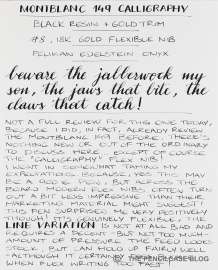 MONTBLANC 149 CALLIGRAPHY
BLACK RESIN + GOLD TRIM
#9, 18K GOLD FLEXIBLE NIB
PELIKAN EDELSTEIN ONYX
beware the jabberwock my
son, the jaws that bite, the
claws that catch!
NOT A FULL REVIEW FOR THIS ONE TODAY,
BECAUSE I DID, IN FACT, ALREADY REVIEW
THE MONTBLANC 149 BEFORE. THERE'S
NOTHING NEW OR OUT OF THE ORDINARY
TO DISCUSS HERE EXCEPT FOR
THE "CALLIGRAPHY" FLEX NIB!
I WENT INTO CONSIDERING TAMING MY
EXPECTATIONS, BECAUSE, YES, THIS MAY
BE A FLEX PEN, BUT ACROSS THE
BOARD MODERN FLEX NIBS OFTEN TURN
OUT A BIT LESS IMPRESSIVE THAN THEIR
MARKETING MATERIAL MIGHT SUGGEST.
THIS PEN SURPRISED ME VERY POSITIVELY
THOUGH! IT'S GENUINELY FLEXIBLE, THE
LINE VARIATION IS NOT AT ALL BAD AND
IT REQUIRES A DECENT - BUT NOT TOO MUCH -
AMOUNT OF PRESSURE. THE FEED LOOKS
STOCK, BUT CAN HOLD UP FAIRLY WELL
ALTHOUGH IT CERTAINLY
WHEN FLEX WRITING TOO FAST!